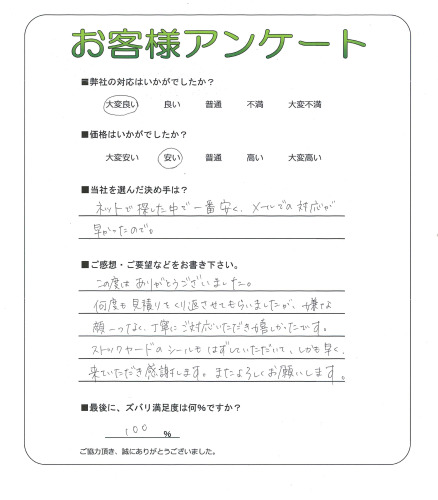 お客様アンケート
■弊社の対応はいかがでしたか？
大変良い 良い 普通 不満 大変不満
■価格はいかがでしたか？
大変安い 安い 普通 高い 大変高い
■当社を選んだ決め手は？
ネットで探した中で一番安く、メールでの対応が
早かったので。
■ご感想・ご要望などをお書き下さい。
この度はありがとうございました。
何度も見積りをくり返させてもらいましたが、嫌な
顔一つなく、丁寧にご対応いただき嬉しかったです。
ストックヤードのシールもはずしていただいて、しかも早く
来ていただき感謝します。またよろしくお願いします。
■最後に、ズバリ満足度は何%ですか？
100 %
ご協力頂き、誠にありがとうございました。